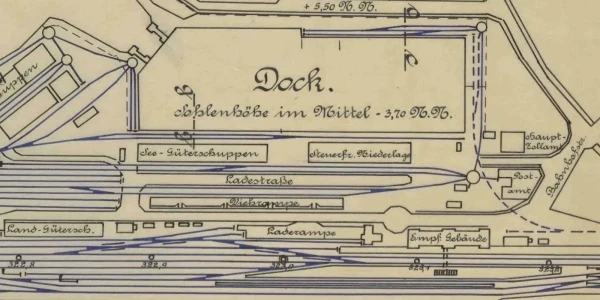 + 5,50 N.N.
Dock.
Sohlenhöhe im Mittel - 3,70 N.N.
Haupt-
Zollamt
See-Güterschuppen
Steuerfr. Niederlage
Ladestraße
Post-
amt
Bahnhofstr.
Viehrampe
Land-Gütersch.
Laderampe
Empf. Gebäude
322,8
322,9
323,0
323,1